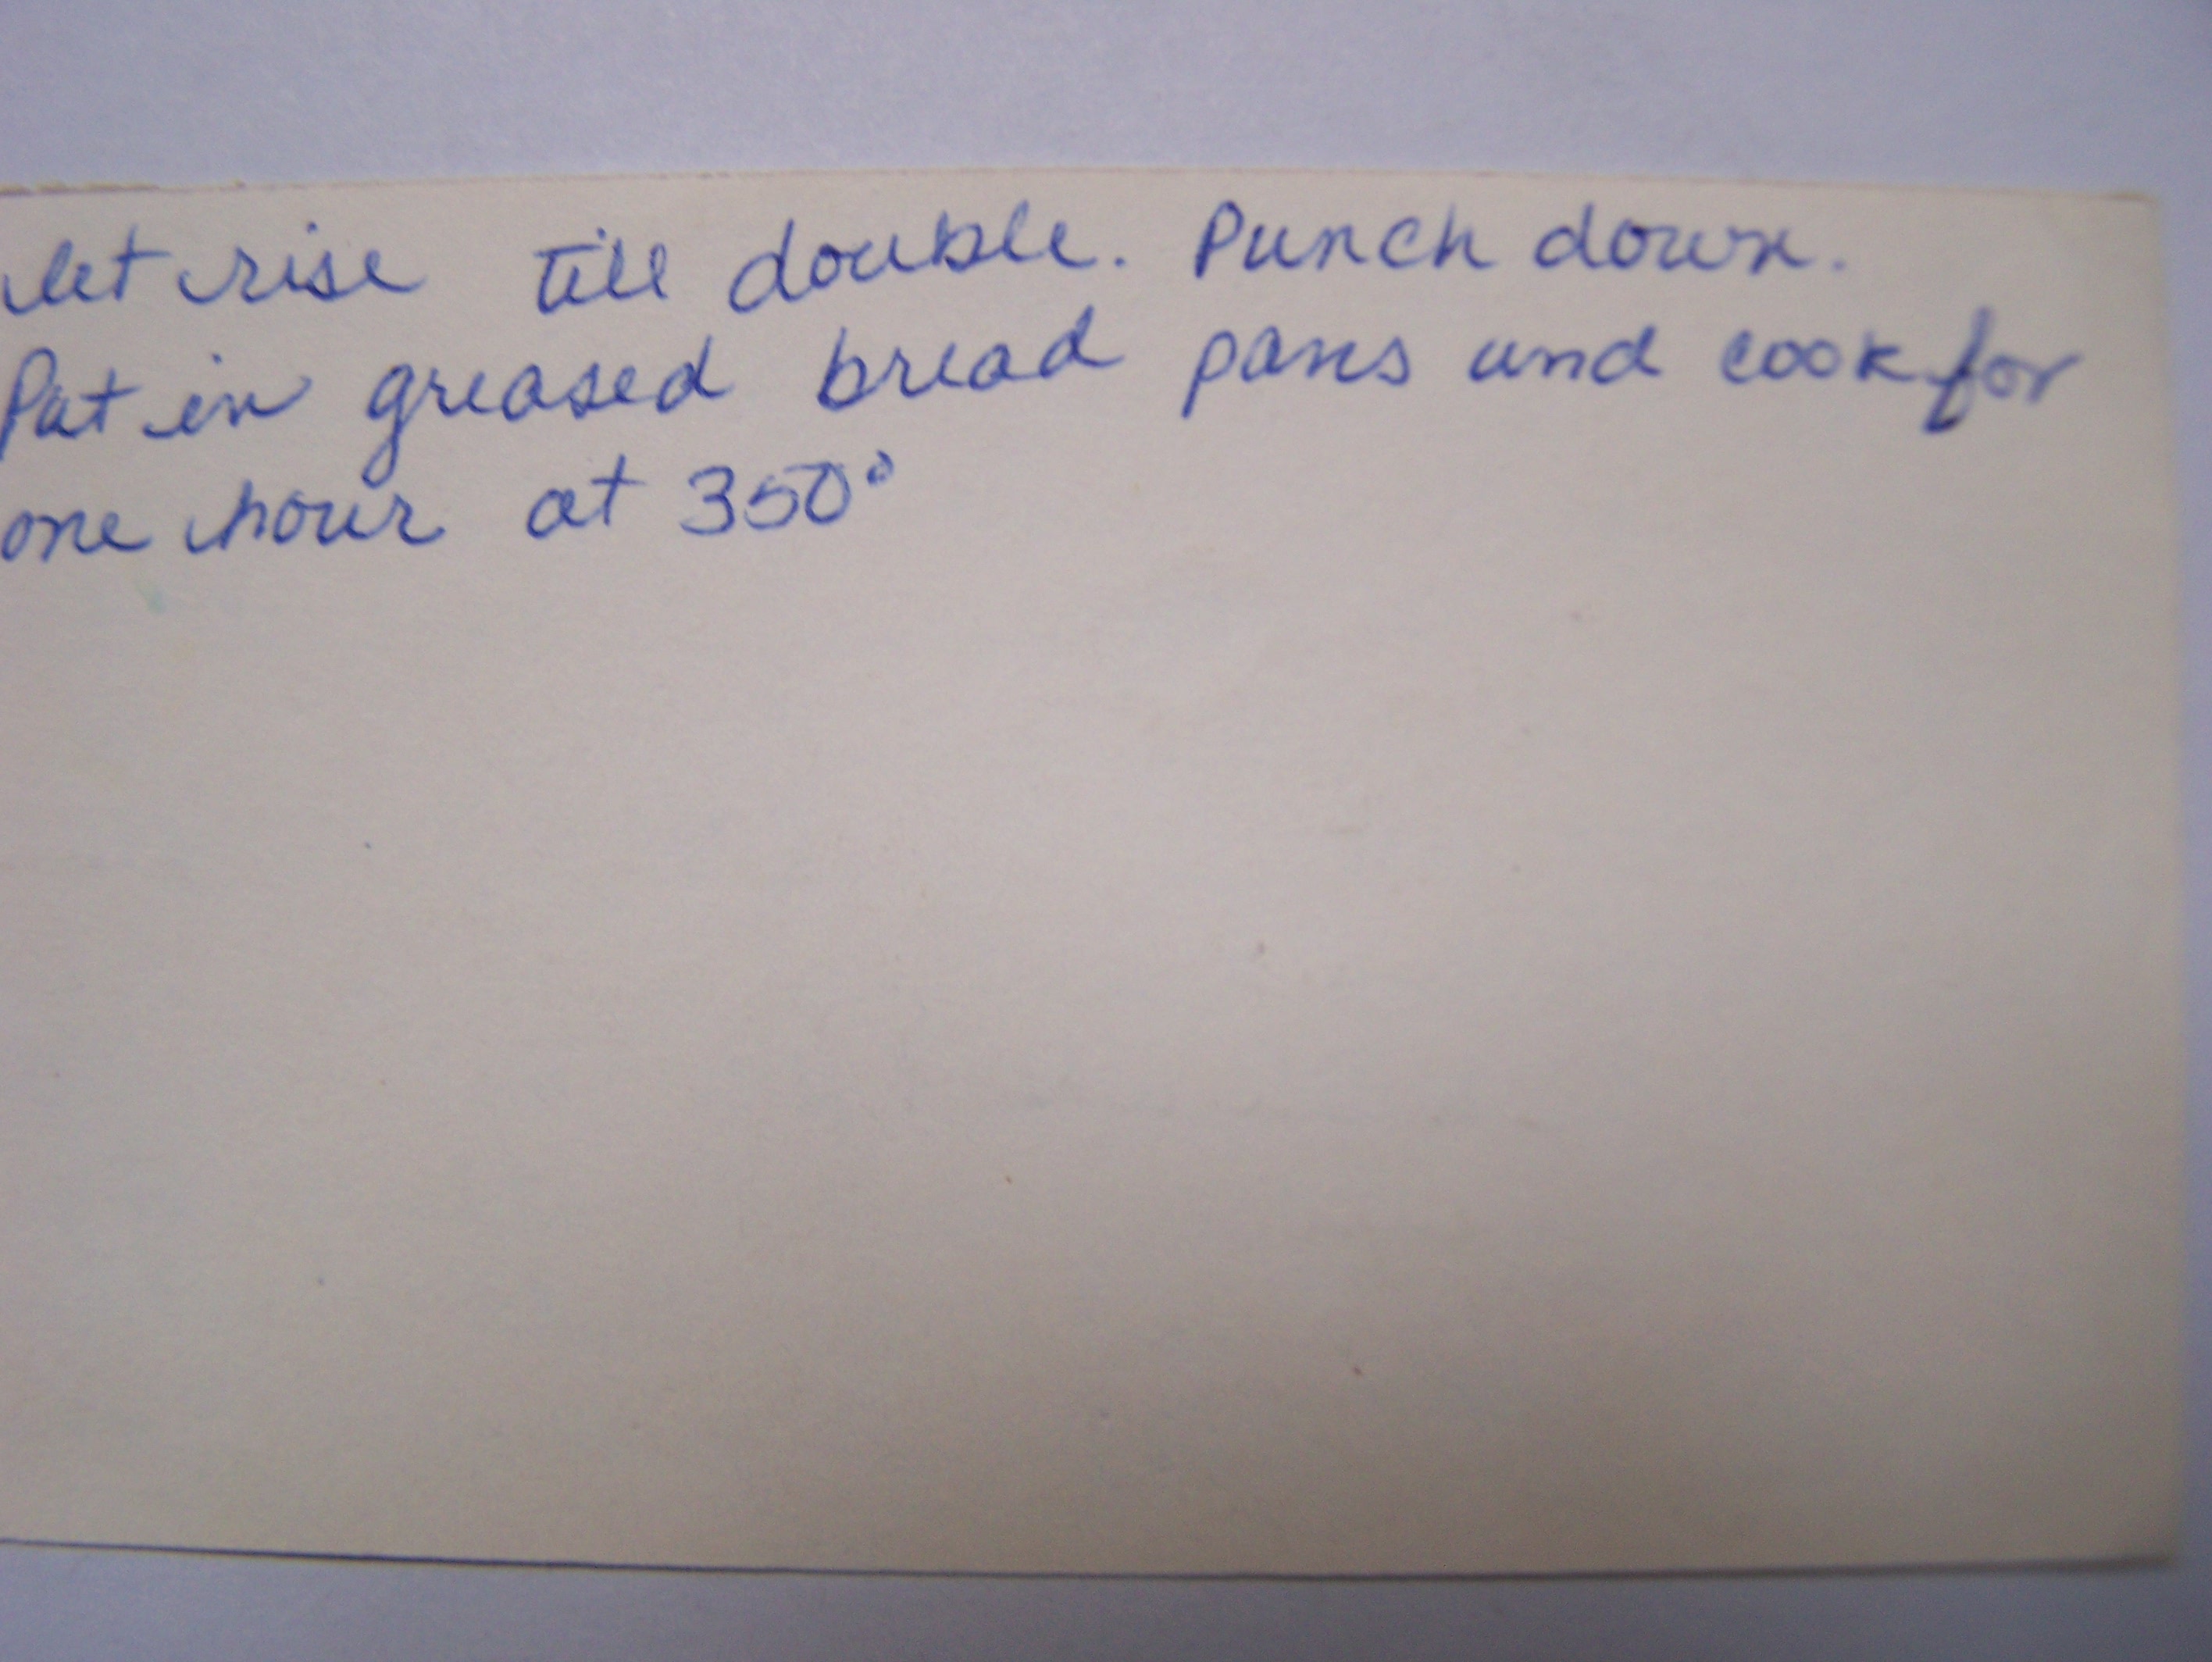 let rise till double. Punch down.
Pat in greased bread pans and cook for
one hour at 350°